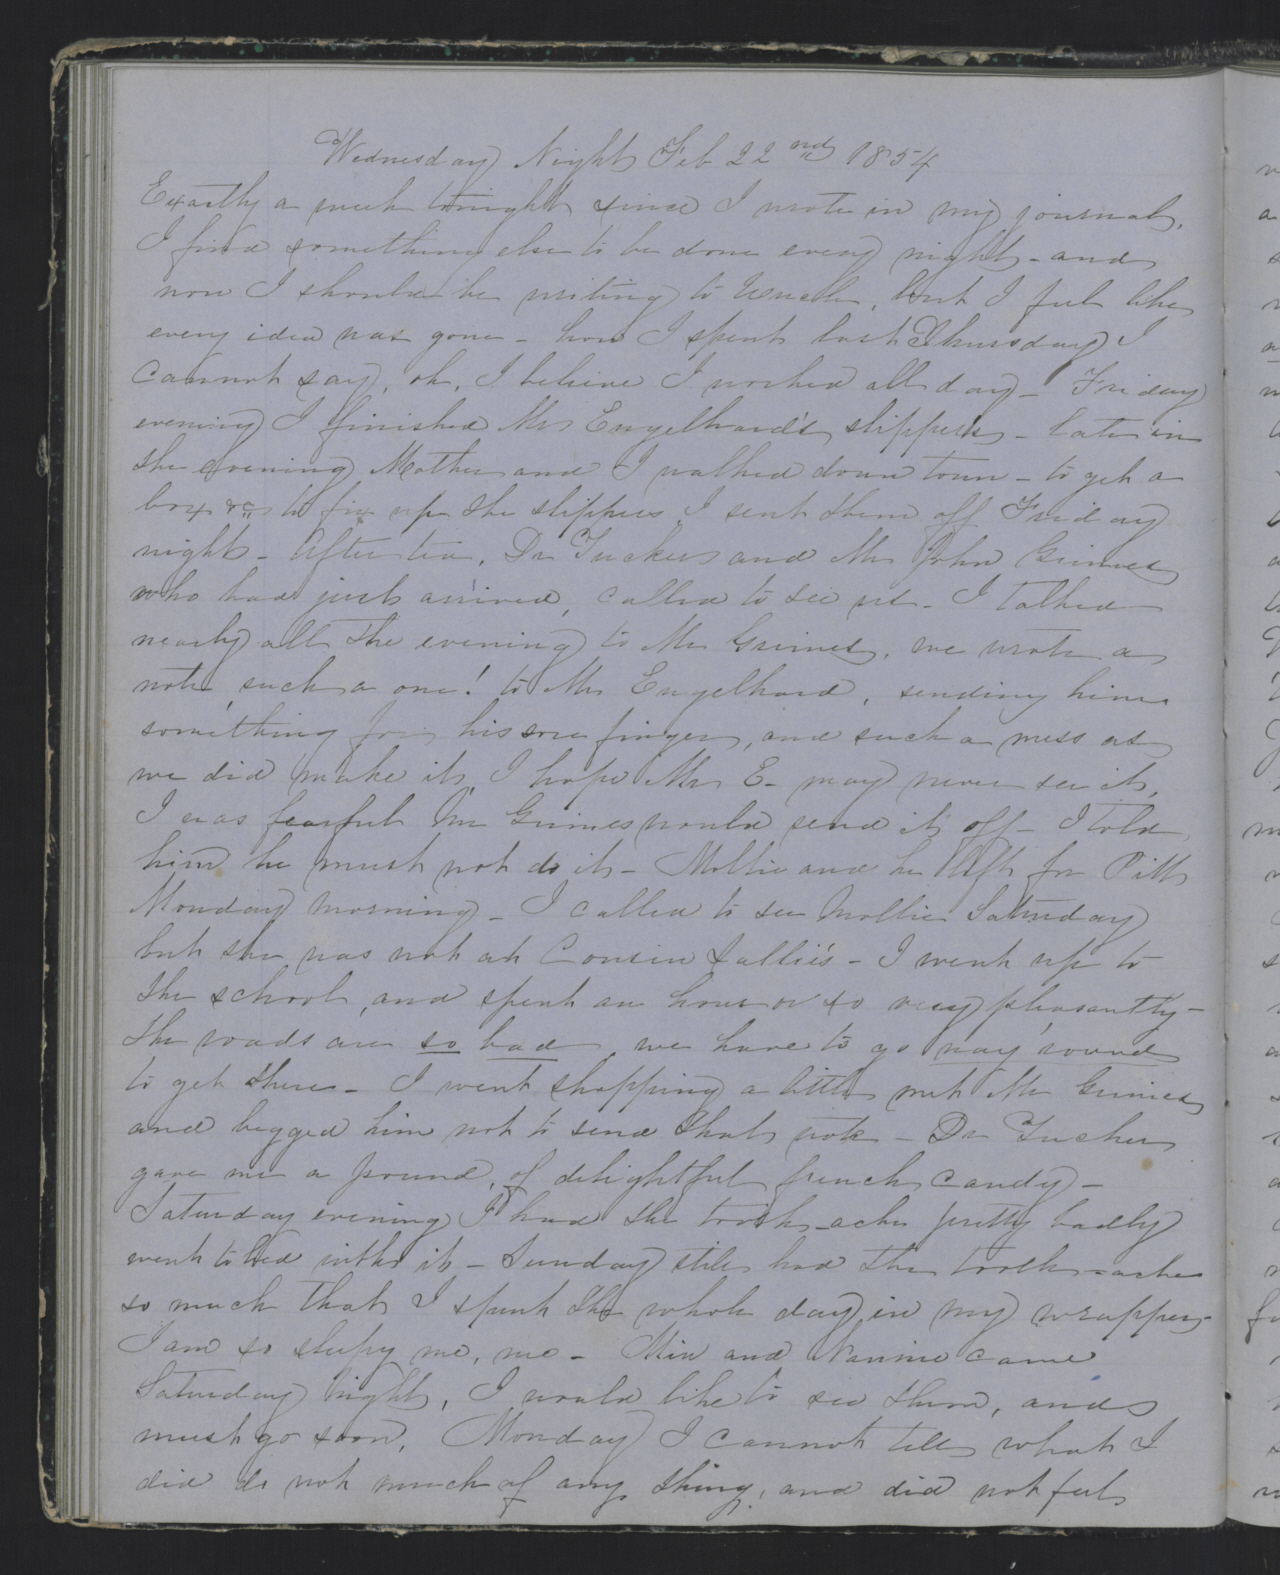 Wednesday Night Feb 22nd 1854
Exactly a week tonight since I wrote in my journal,
I find something else to be done every night - and
now I should be writing to but I feel like
every idea was gone - how I spent last Thursday I
cannot say, oh, I believe I worked all day - Friday
evening I finished Mr Engelhard's slippers - late in
the evening Mother and I walked down town - to get a
box &c to fix up the slippers I sent them off Friday
night - After tea, Dr Tucker and Mr John Grimes
who had just arrived, called to see us - I talked
nearly all the evening to Mr Grimes, we wrote a
note, such a one! to Mr Engelhard, sending him
something for his sore finger, and such a mess as
we did make it, I hope Mr E- may never see it,
I was fearful Mr Grimes would send it off - I told
him he must not do it - Mollie and he left for Pitt
Monday morning - I called to see Mollie Saturday
but she was not at Cousin Sallie's - I went up to
the school, and spent an hour or so very pleasantly -
the roads are so bad we have to go way round
to get there - I went shopping a little met Mr Grimes
and begged him not to send that note - Dr Tucker
gave me a pound, of delightful french candy -
Saturday evening I had the tooth-ache pretty badly
went to bed with it - Sunday still had the tooth-ache
so much that I spent the whole day in my wrapper -
I am so sleepy me, me - Min and Nannie came
Saturday night, I would like to see them, and
must go soon, Monday I cannot tell what I
did do not much of any thing, and did not feel